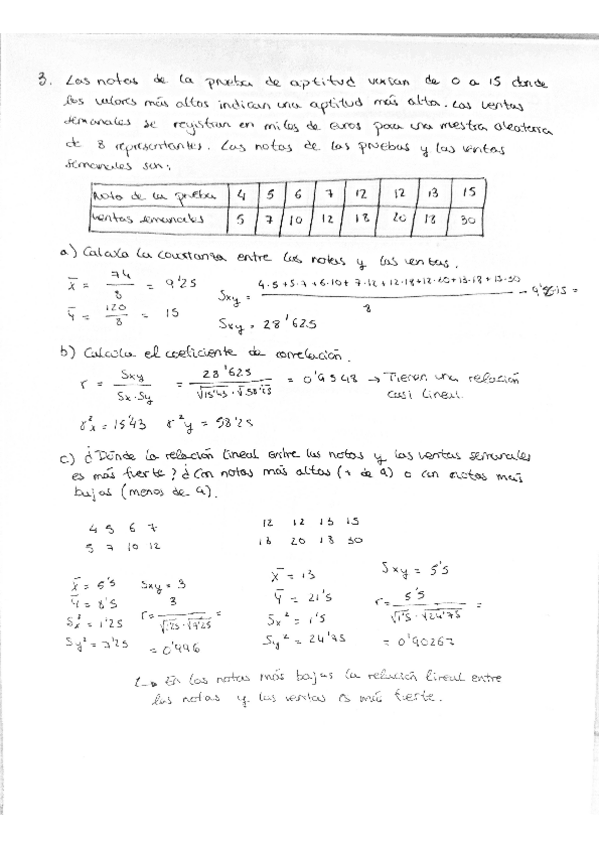 3. Las notas de la prueba de aptitud varian de 0 a 15 donde
los valores más altos indican una aptitud más alta. Las ventas
semanales se registran en miles de euros para una muestra aleatoria
de 8 representantes. Las notas de las pruebas y las ventas
semanales son:
Nota de la prueba 4 5 6 7 12 12 13 15
Ventas semanales 5 7 10 12 18 20 18 30
a) Calcula la covarianza entre las notas y las ventas.
x̄ = 74/8 = 9'25
Sxy = (4·5+5·7+6·10+7·12+12·18+12·20+13·18+15·30)/8 - 9'25·15 =
ȳ = 120/8 = 15
Sxy = 28'625
b) Calcula el coeficiente de correlación.
r = Sxy/(Sx·Sy) = 28'625/(√15'43 · √58'25) = 0'9548 → Tienen una relación
casi lineal.
r²x = 15'43 r²y = 58'25
c) ¿Dónde la relación lineal entre las notas y las ventas semanales
es más fuerte? ¿Con notas más altas (+ de 9) o con notas más
bajas (menos de 9).
4 5 6 7
5 7 10 12
x̄ = 5'5 Sxy = 3
ȳ = 8'5
r = 3/(√1'25 · √7'25) =
Sx² = 1'25
Sy² = 7'25
= 0'996
12 12 13 15
18 20 18 30
x̄ = 13
Sxy = 5'5
ȳ = 21'5
r = 5'5/(√1'5 · √24'75) =
Sx² = 1'5
Sy² = 24'75
= 0'90267
↳ En las notas más bajas la relación lineal entre
las notas y las ventas es más fuerte.